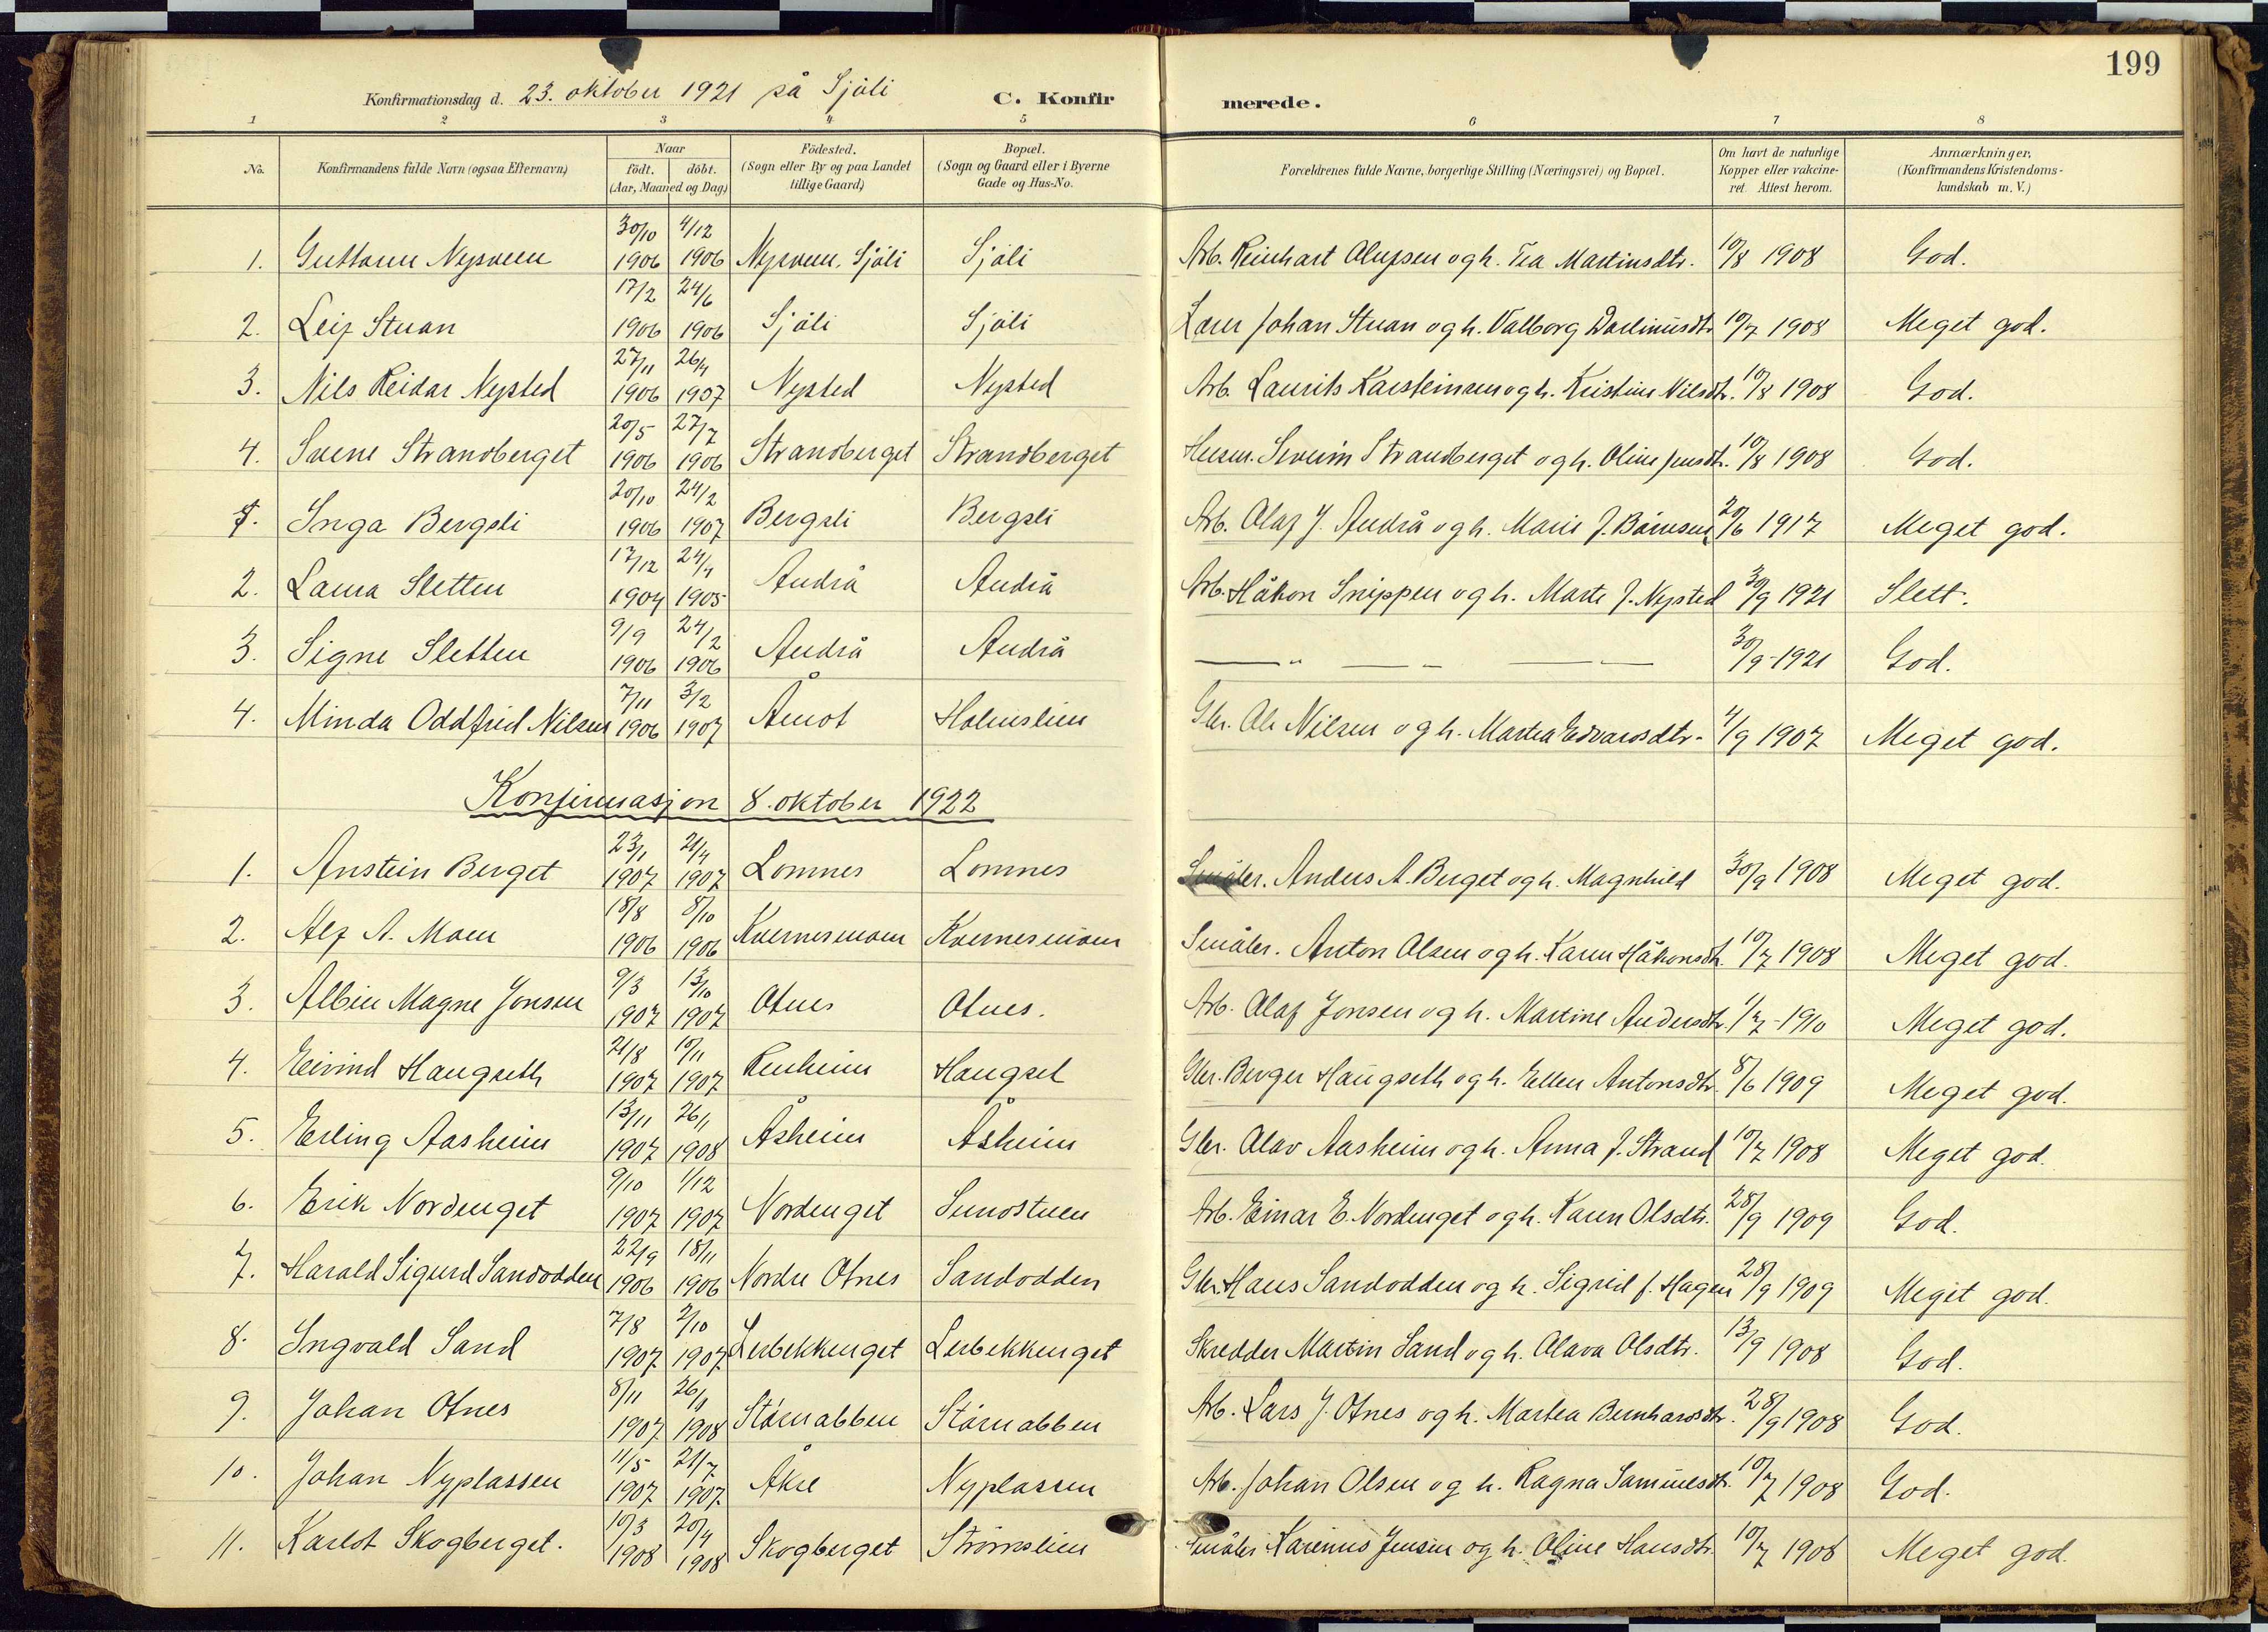 199
Konfirmationsdag d. 23. oktober 1921 på Sjøli C. Konfirmerede.
1 2 3 4 5 6 7 8
No. Konfirmandens fulde Navn (ogsaa Efternavn) Naar født. døbt. (Aar, Maaned og Dag) Fødested. (Sogn eller By og paa Landet tillige Gaard) Bopæl. (Sogn og Gaard eller i Byerne Gade og Hus-No. Forældrenes fulde Navne, borgerlige Stilling (Næringsvei) og Bopæl. Om havt de naturlige Kopper eller vakcineret. Attest herom. Anmærkninger. (Konfirmandens Kristendomskundskab m. V.)
1. Guttorm Nysveen 30/10 1906 4/12 1906 Nysveen, Sjøli Sjøli Arb. Reinhart Olufsen og h. Tea Martinsdtr. 10/8 1908 God.
2. Leif Stuan 17/2 1906 24/6 1906 Sjøli Sjøli Lærer Johan Stuan og h. Valborg 10/7 1908 Meget god.
3. Nils Reidar Nysted 27/11 1906 26/4 1907 Nysted Nysted Arb. Laurits Karsteinsen og h. Kristine Nilsdtr. 10/8 1908 God.
4. Sverre Strandberget 20/5 1906 27/7 1906 Strandberget Strandberget Severin Strandberget og h. Oline Jensdtr. 10/8 1908 God.
1. Inga Bergsli 20/10 1906 24/2 1907 Bergsli Bergsli Arb. Olaf J. Andrå og h. Marie J. 20/6 1917 Meget god.
2. Laura Sletten 17/12 1904 24/4 1905 Andrå Andrå Arb. Håkon Snippen og h. Marte J. Nysted 30/9 1921 Slett.
3. Signe Sletten 9/9 1906 24/2 1906 Andrå Andrå — „ — — — — 30/9-1921 God.
4. Minda Oddfrid Nilsen 7/11 1906 3/2 1907 Åmot Holmslien Gbr. Ole Nilsen og h. Martea Edvardsdtr. 4/9 1907 Meget god.
Konfirmasjon 8. oktober 1922
1. Anstein Berget 23/1 1907 21/4 1907 Lomnes Lomnes Småbr. Anders A. Berget og h. Magnhild 30/9 1908 Meget god.
2. Alf A. Moen 18/8 1906 8/10 1906 Kvernesmoen Kvernesmoen Småbr. Anton Olsen og h. Karen Håkonsdtr. 10/7 1908 Meget god.
3. Albin Magne Jonsen 9/3 1907 13/10 1907 Otnes Otnes. Arb. Olaf Jonsen og h. Martine Andersdtr. 1/7-1910 Meget god.
4. Eivind Haugseth 21/8 1907 10/11 1907 Renheim Haugset Gbr. Berger Haugseth og h. Ellen Antonsdtr. 8/6 1909 Meget god.
5. Erling Aasheim 13/11 1907 26/1 1908 Åsheim Åsheim Gbr. Olav Aasheim og h. Anna J. Strand 10/7 1908 Meget god.
6. Erik Nordenget 9/10 1907 1/12 1907 Nordenget Sundstuen Arb. Einar E. Nordenget og h. Karen Olsdtr. 28/9 1909 God.
7. Harald Sigurd Sandodden 22/9 1906 18/11 1906 Nordre Otnes Sandodden Gbr. Hans Sandodden og h. Sigrid f. Hagen 28/9 1909 Meget god.
8. Ingvald Sand 7/8 1907 2/10 1907 Lerbekkenget Lerbekkenget Skredder Martin Sand og h. Olava Olsdtr. 13/9 1908 God.
9. Johan Otnes 8/11 1907 26/1 1908 Størnabben Størnabben Arb. Lars J. Otnes og h. Martea Bernhardsdtr. 28/9 1908 God.
10. Johan Nyplassen 11/5 1907 21/7 1907 Åkre Nyplassen Arb. Johan Olsen og h. Ragna Samuelsdtr. 10/7 1908 God.
11. Karlot Skogberget. 10/3 1908 20/4 1908 Skogberget Strømslien Småbr. Karenus Jensen og h. Oline Hansdtr. 10/7 1908 Meget god.